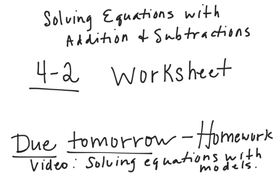 Solving Equations with
Addition & Subtractions
4-2 Worksheet
Due tomorrow - Homework
Video: Solving equations with
models.